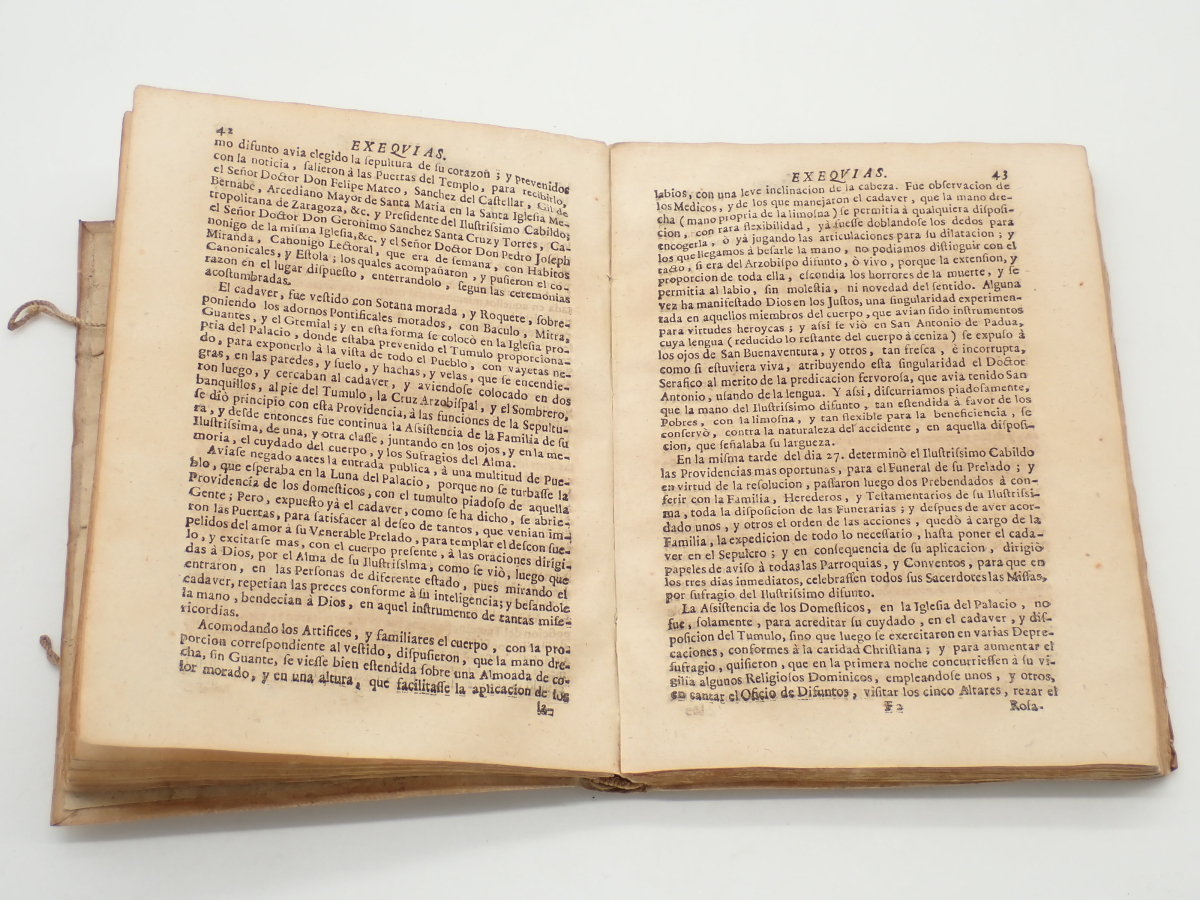 42
EXEQVIAS.
mo difunto avia elegido la ſepultura de ſu corazon ; y prevenidos
con la noticia, ſalieron à las Puertas del Templo, para recibirlo,
el Señor Doctor Don Felipe Mateo, Sanchez del Caſtellar, Gil de
Bernabè, Arcediano Mayor de Santa Maria en la Santa Igleſia Me-
tropolitana de Zaragoza, &c. y Preſidente del Iluſtriſſimo Cabildo;
el Señor Doctor Don Geronimo Sanchez Santa Cruz y Torres, Ca-
nonigo de la miſma Igleſia,&c. y el Señor Doctor Don Pedro Joſeph
Miranda, Canonigo Lectoral, que era de ſemana, con Habitos
Canonicales, y Eſtola ; los quales acompañaron, y puſieron el co-
razon en el lugar diſpueſto, enterrandolo, ſegun las ceremonias
acoſtumbradas.
El cadaver, fue veſtido con Sotana morada, y Roquete, ſobre-
poniendo los adornos Pontificales morados, con Baculo, Mitra,
Guantes, y el Gremial ; y en eſta forma ſe colocò en la Igleſia pro-
pria del Palacio, donde eſtaba prevenido el Tumulo proporciona-
do, para exponerlo à la viſta de todo el Pueblo, con vayetas ne-
gras, en las paredes, y ſuelo, y hachas, y velas, que ſe encendie-
ron luego, y cercaban al cadaver, y aviendoſe colocado en dos
banquillos, al pie del Tumulo, la Cruz Arzobiſpal, y el Sombrero,
ſe diò principio con eſta Providencia, à las funciones de la Sepultu-
ra, y deſde entonces fue continua la Aſsiſtencia de la Familia de ſu
Iluſtriſsima, de una, y otra claſſe, juntando en los ojos, y en la me-
moria, el cuydado del cuerpo, y los Sufragios del Alma.
Aviaſe negado antes la entrada publica, à una multitud de Pue-
blo, que eſperaba en la Luna del Palacio, porque no ſe turbaſſe la
Providencia de los domeſticos, con el tumulto piadoſo de aquella
Gente ; Pero, expueſto yà el cadaver, como ſe ha dicho, ſe abrie-
ron las Puertas, para ſatisfacer al deſeo de tantos, que venian im-
pelidos del amor à ſu Venerable Prelado, para templar el deſconſue-
lo, y excitarſe mas, con el cuerpo preſente, à las oraciones dirigi-
das à Dios, por el Alma de ſu Iluſtriſsima, como ſe viò, luego que
entraron, en las Perſonas de diferente eſtado, pues mirando el
cadaver, repetian las preces conforme à ſu inteligencia; y beſandole
la mano, bendecian à Dios, en aquel inſtrumento de tantas miſe-
ricordias.
Acomodando los Artifices, y familiares el cuerpo, con la pro-
porcion correſpondiente al veſtido, diſpuſieron, que la mano dre-
cha, ſin Guante, ſe vieſſe bien eſtendida ſobre una Almoada de co-
lor morado, y en una altura, que facilitaſſe la aplicacion de los
la-
EXEQVIAS.
43
labios, con una leve inclinacion de la cabeza. Fue obſervacion de
los Medicos, y de los que manejaron el cadaver, que la mano dre-
cha (mano propria de la limoſna) ſe permitia à qualquiera diſpoſi-
cion, con rara flexibilidad, yà fueſſe doblandoſe los dedos para
encogerla, ò yà jugando las articulaciones para ſu dilatacion ; y
los que llegamos à beſarle la mano, no podiamos diſtinguir con el
tacto, ſi era del Arzobiſpo difunto, ò vivo, porque la extenſion, y
proporcion de toda ella, eſcondia los horrores de la muerte, y ſe
permitia al labio, ſin moleſtia, ni novedad del ſentido. Alguna
vez ha manifeſtado Dios en los Juſtos, una ſingularidad experimen-
tada en aquellos miembros del cuerpo, que avian ſido inſtrumentos
para virtudes heroycas; y aſsi ſe viò en San Antonio de Padua,
cuya lengua (reducido lo reſtante del cuerpo à ceniza) ſe expuſo à
los ojos de San Buenaventura, y otros, tan freſca, è incorrupta,
como ſi eſtuviera viva, atribuyendo eſta ſingularidad el Doctor
Serafico al merito de la predicacion fervoroſa, que avia tenido San
Antonio, uſando de la lengua. Y aſsi, diſcurriamos piadoſamente,
que la mano del Iluſtriſsimo difunto, tan eſtendida à favor de los
Pobres, con la limoſna, y tan flexible para la beneficiencia, ſe
conſervò, contra la naturaleza del accidente, en aquella diſpoſi-
cion, que ſeñalaba ſu largueza.
En la miſma tarde del dia 27. determinò el Iluſtriſsimo Cabildo
las Providencias mas oportunas, para el Funeral de ſu Prelado ; y
en virtud de la reſolucion, paſſaron luego dos Prebendados à con-
ferir con la Familia, Herederos, y Teſtamentarios de ſu Iluſtriſsi-
ma, toda la diſpoſicion de las Funerarias ; y deſpues de aver acor-
dado unos, y otros el orden de las acciones, quedò à cargo de la
Familia, la expedicion de todo lo neceſſario, haſta poner el cada-
ver en el Sepulcro ; y en conſequencia de ſu aplicacion, dirigiò
papeles de aviſo à todas las Parroquias, y Conventos, para que en
los tres dias inmediatos, celebraſſen todos ſus Sacerdotes las Miſſas,
por ſufragio del Iluſtriſsimo difunto.
La Aſsiſtencia de los Domeſticos, en la Igleſia del Palacio, no
fue, ſolamente, para acreditar ſu cuydado, en el cadaver, y diſ-
poſicion del Tumulo, ſino que luego ſe exercitaron en varias Depre-
caciones, conformes à la caridad Chriſtiana ; y para aumentar el
ſufragio, quiſieron, que en la primera noche concurrieſſen à ſu vi-
gilia algunos Religioſos Dominicos, empleandoſe unos, y otros,
en cantar el Oficio de Difuntos, viſitar los cinco Altares, rezar el
F2
Roſa-